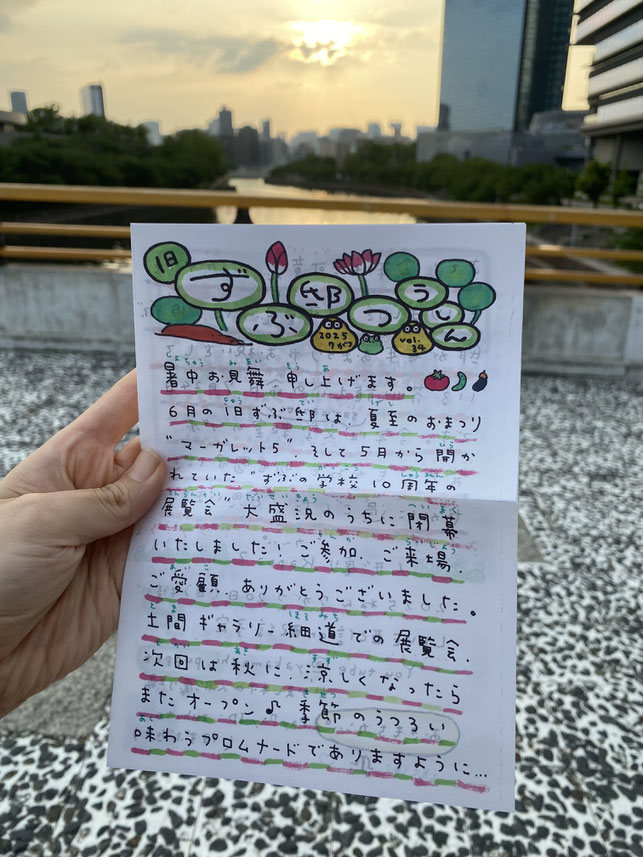 旧ずぶ邸つうしん
2025
7がつ
vol.
34
暑中お見舞、申し上げます。
6月の旧ずぶ邸は、夏至のおまつり
“マーガレット5”、そして5月から開か
れていた“ずぶの学校10周年の
展覧会”大盛況のうちに閉幕
いたしました！ご参加、ご来場、
ご愛顧、ありがとうございました。
土間ギャラリー細道での展覧会、
次回は秋に、涼しくなったら
またオープン♪季節のうつろい
味わうプロムナードでありますように…